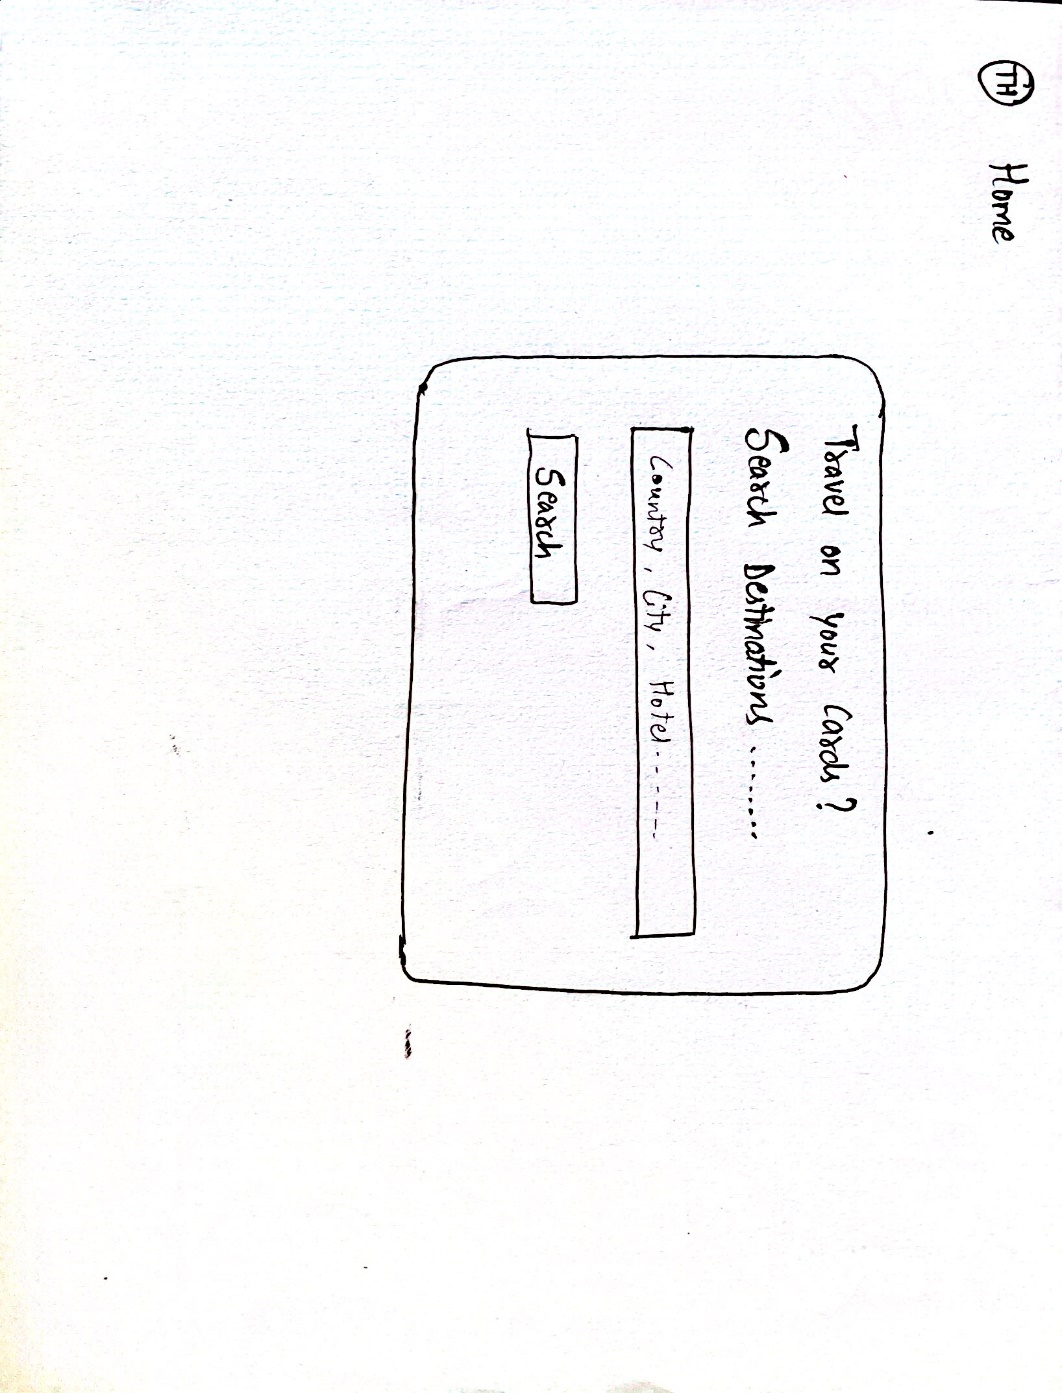 TH Home
Travel on your Cards?
Search Destinations ........
Country, City, Hotel.------
Search